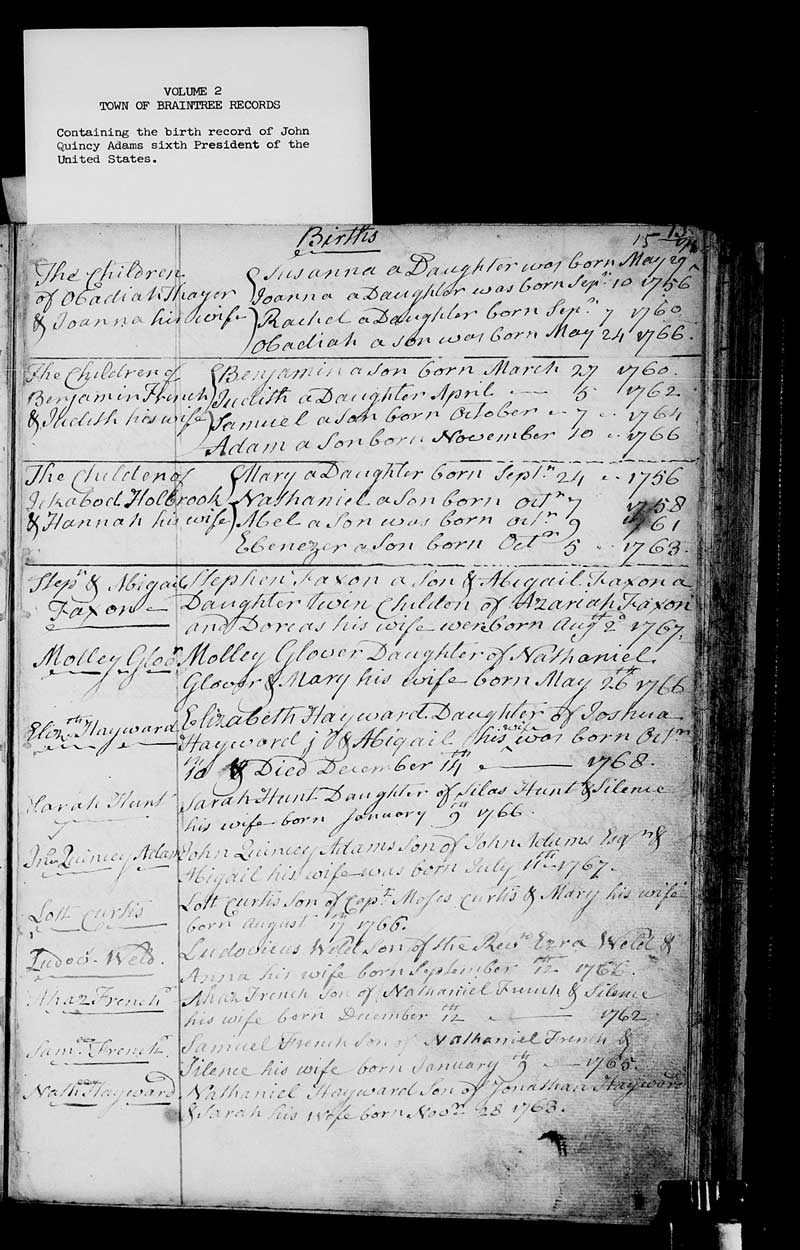 VOLUME 2
TOWN OF BRAINTREE RECORDS
Containing the birth record of John
Quincy Adams sixth President of the
United States.
Births
15
The Children Susanna a Daughter was born May 29
of Obadiah Thayer Joanna a Daughter was born Sepr 10 1756
& Joanna his wife Rachel a Daughter born Sepr 7 1760
Obadiah a son was born May 24 1766.
The Children of Benjamin a son born March 27 1760.
Benjamin French Judith a Daughter April — 5 1762
& Judith his wife Samuel a son born October — 7 — 1764
Adam a Son born November 10 — 1766
The Childen of Mary a Daughter born Septr 24 — 1756
Ickabod Holbrook Nathaniel a Son born Octr 7 1758
& Hannah his wife Abel a Son was born Octr 9 1761
Ebenezer a Son born Octr 5 — 1763.
Stepn & Abigail Stephen Faxon a Son & Abigail Faxon a
Faxon Daughter twin Childen of Azariah Faxon
and Dorcas his wife were born Augt 2d 1767.
Molley Glovr Molley Glover Daughter of Nathaniel
Glover & Mary his wife born May 26th 1766
Elizth Hayward Elizabeth Hayward Daughter of Joshua
Hayward jr & Abigail his wife was born Octr
10th & Died December 14th — 1768.
Sarah Hunt Sarah Hunt Daughter of Silas Hunt & Silence
his wife born January 9th 1766.
Jno Quincy Adams John Quincy Adams Son of John Adams Esqr &
Abigail his wife was born July 11th 1767.
Lott Curtis Lott Curtis Son of Capt. Moses Curtis & Mary his wife
born August 17th 1766.
Ludov. Weld. Ludovicus Weld Son of the Revd Ezra Weld &
Anna his wife born September 12th 1766.
Ahaz French Ahaz French Son of Nathaniel French & Silence
his wife born December 12th — 1762
Saml French. Samuel French Son of Nathaniel French &
Silence his wife born January 9th — 1765.
Nathl Hayward Nathaniel Hayward Son of Jonathan Hayward
& Sarah his Wife born Novr 28 1763.